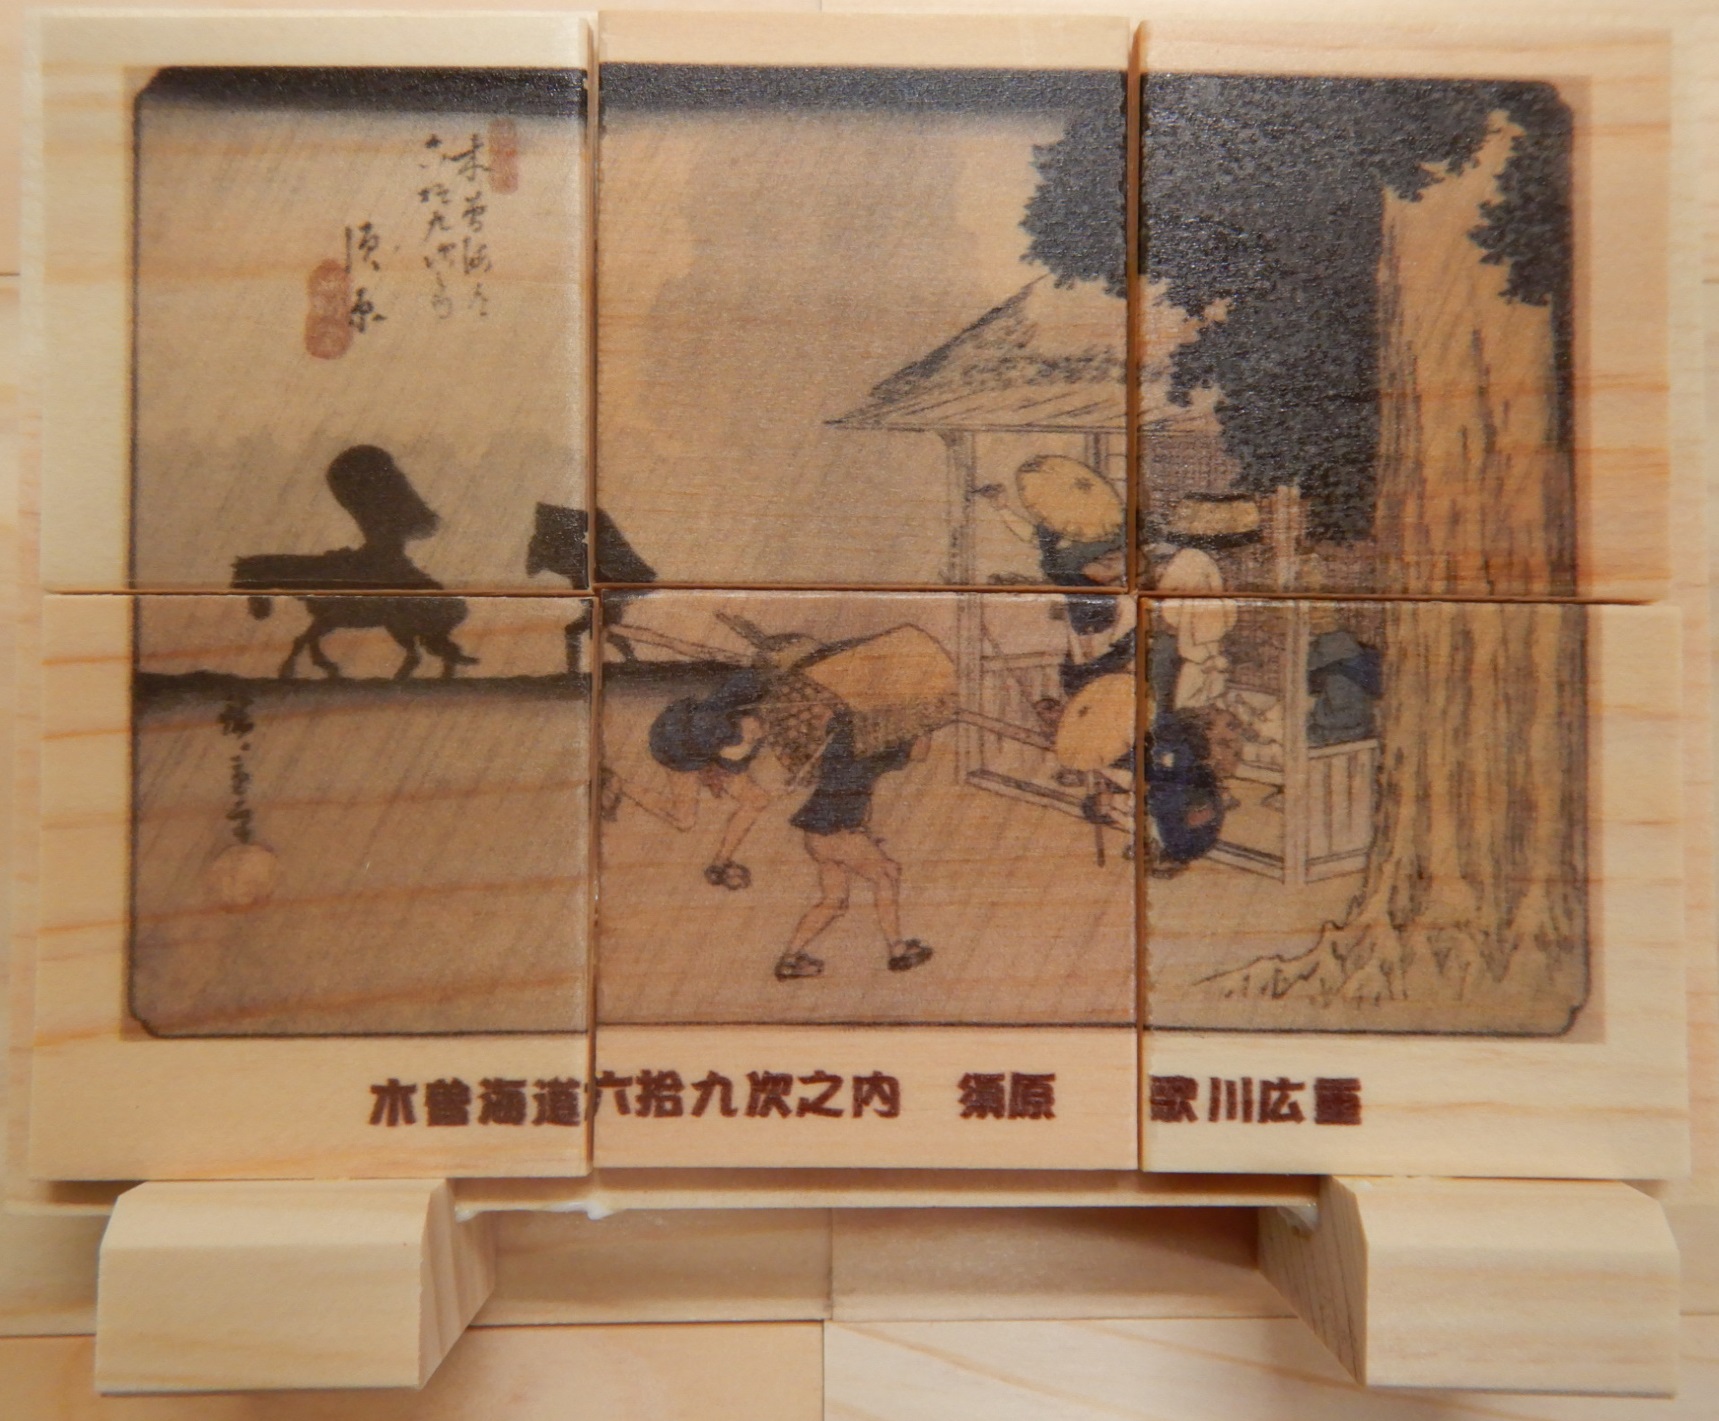 木曽海道
六拾九次之内
須原
広重画
木曽海道六拾九次之内 須原 歌川広重